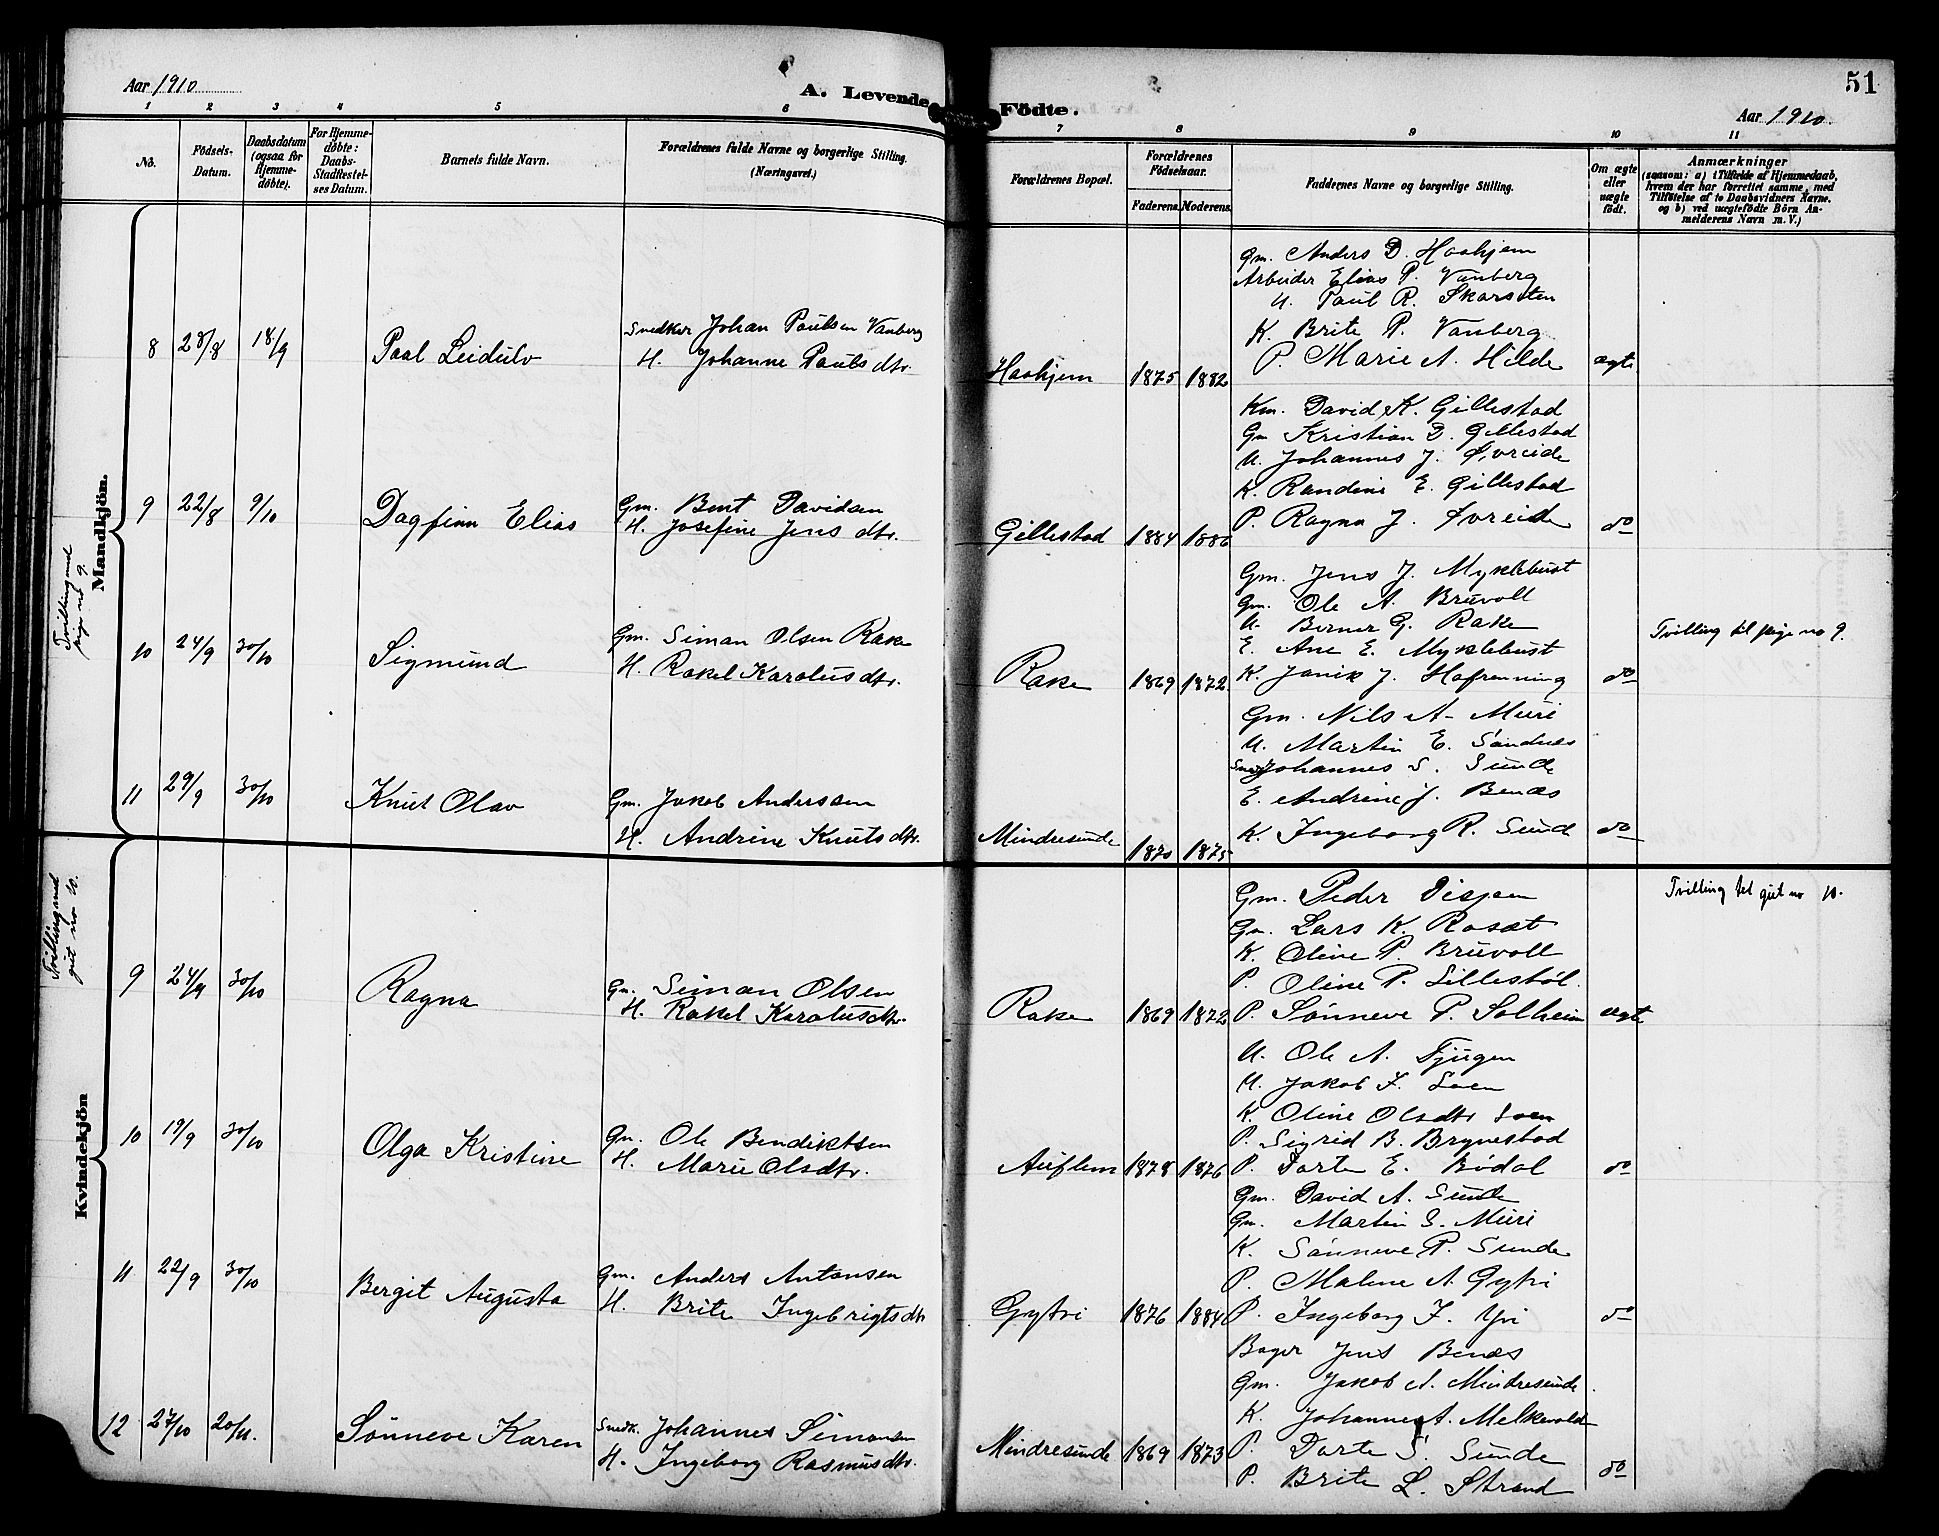 51
Aar 1910
A. Levende Födte.
Aar 1910.
1 2 3 4 5 6 7 8 9 10 11
No.
Födsels-Datum.
Daabsdatum (ogsaa for Hjemme-döbte).
For Hjemme-döbte: Daabs-Stadfestel-ses Datum.
Barnets fulde Navn.
Forældrenes fulde Navne og borgerlige Stilling.
(Næringsvei.)
Forældrenes Bopæl.
Forældrenes Födselsaar.
Faderens. Moderens.
Faddernes Navne og borgerlige Stilling.
Om ægte eller uægte födt.
Anmærkninger
(saasom: a) i Tilfælde af Hjemmedaab,
hvem der har forrettet samme, med
Tilföielse af to Daabsvidners Navne.
og b) ved uægtefödte Börn An-
melderens Navn m. V.)
Mandkjön.
Gm. Anders D. Haahjem
Arbeider Elias P. Vanberg
U. Paul R. Skarsten
K. Brite P. Vanberg
8 28/8 18/9 Paal Leidulv Snedker Johan Paulsen Vanberg
H. Johanne Paulsdtr.
Haahjem 1875 1882 P. Marie A. Hilde ægte
Km. David K. Gillestad
Gm Kristian D. Gillestad
U. Johannes J. Øvreide
K. Randine E. Gillestad
9 22/8 9/10 Dagfinn Elias Gm. Bent Davidsen
H. Josefine Jensdtr.
Gillestad 1884 1886 P. Ragna J. Øvreide do
Tvilling med pige no 9.
Gm. Jens J. Myklebust
Gm. Ole A. Bruvoll
U. Berner G. Rake
E. Ane E. Myklebust
10 24/9 30/10 Sigmund Gm. Simon Olsen Rake
H. Rakel Karolusdtr.
Rake 1869 1872 K. Janik J. Hafrenning do
Tvilling til pige no 9.
Gm. Nils A. Muri
U. Martin E. Sandnes
Snedk. Johannes S. Sunde
E. Andrine J. Benæs
11 29/9 30/10 Knut Olav Gm. Jakob Anderssen
H. Andrine Knutsdtr.
Mindresunde 1870 1875 K. Ingeborg R. Sund do
Kvindekjön
Tvilling med gut no 10.
Gm. Peder
Gm. Lars K. Rosæt
K. Oline P. Bruvoll
P. Oline P. Lillestøl.
9 24/9 30/10 Ragna Gm. Simon Olsen
H. Rakel Karolusdtr.
Rake 1869 1872 P. Sønneve P. Solheim ægte
Tvilling til gut no 10.
U. Ole A. Tjugen
U. Jakob J. Loen
K. Oline Olsdtr Loen
P. Sigrid B. Brynestad
10 19/9 30/10 Olga Kristine Gm. Ole Bendiktsen
H. Marie Olsdtr.
Auflem 1878 1876 P. Dorte E. Bødal do
Gm. David A. Sunde
Gm. Martin S. Muri
K. Sønneve P. Sunde
P. Malene A. Gytri
11 22/9 30/10 Bergit Augusta Gm. Anders Antonsen
H. Brite Ingebrigtsdtr
Gytri 1876 1884 P. Ingeborg J. Yri do
Bager Jens Benæs
Gm. Jakob A. Mindresunde.
K. Johanne A. Melkevold
12 27/10 20/11. Sønneve Karen Snedk. Johannes Simonsen
H. Ingeborg Rasmusdtr.
Mindresunde 1869 1873 P. Dorte S. Sunde
P. Brite L. Strand do